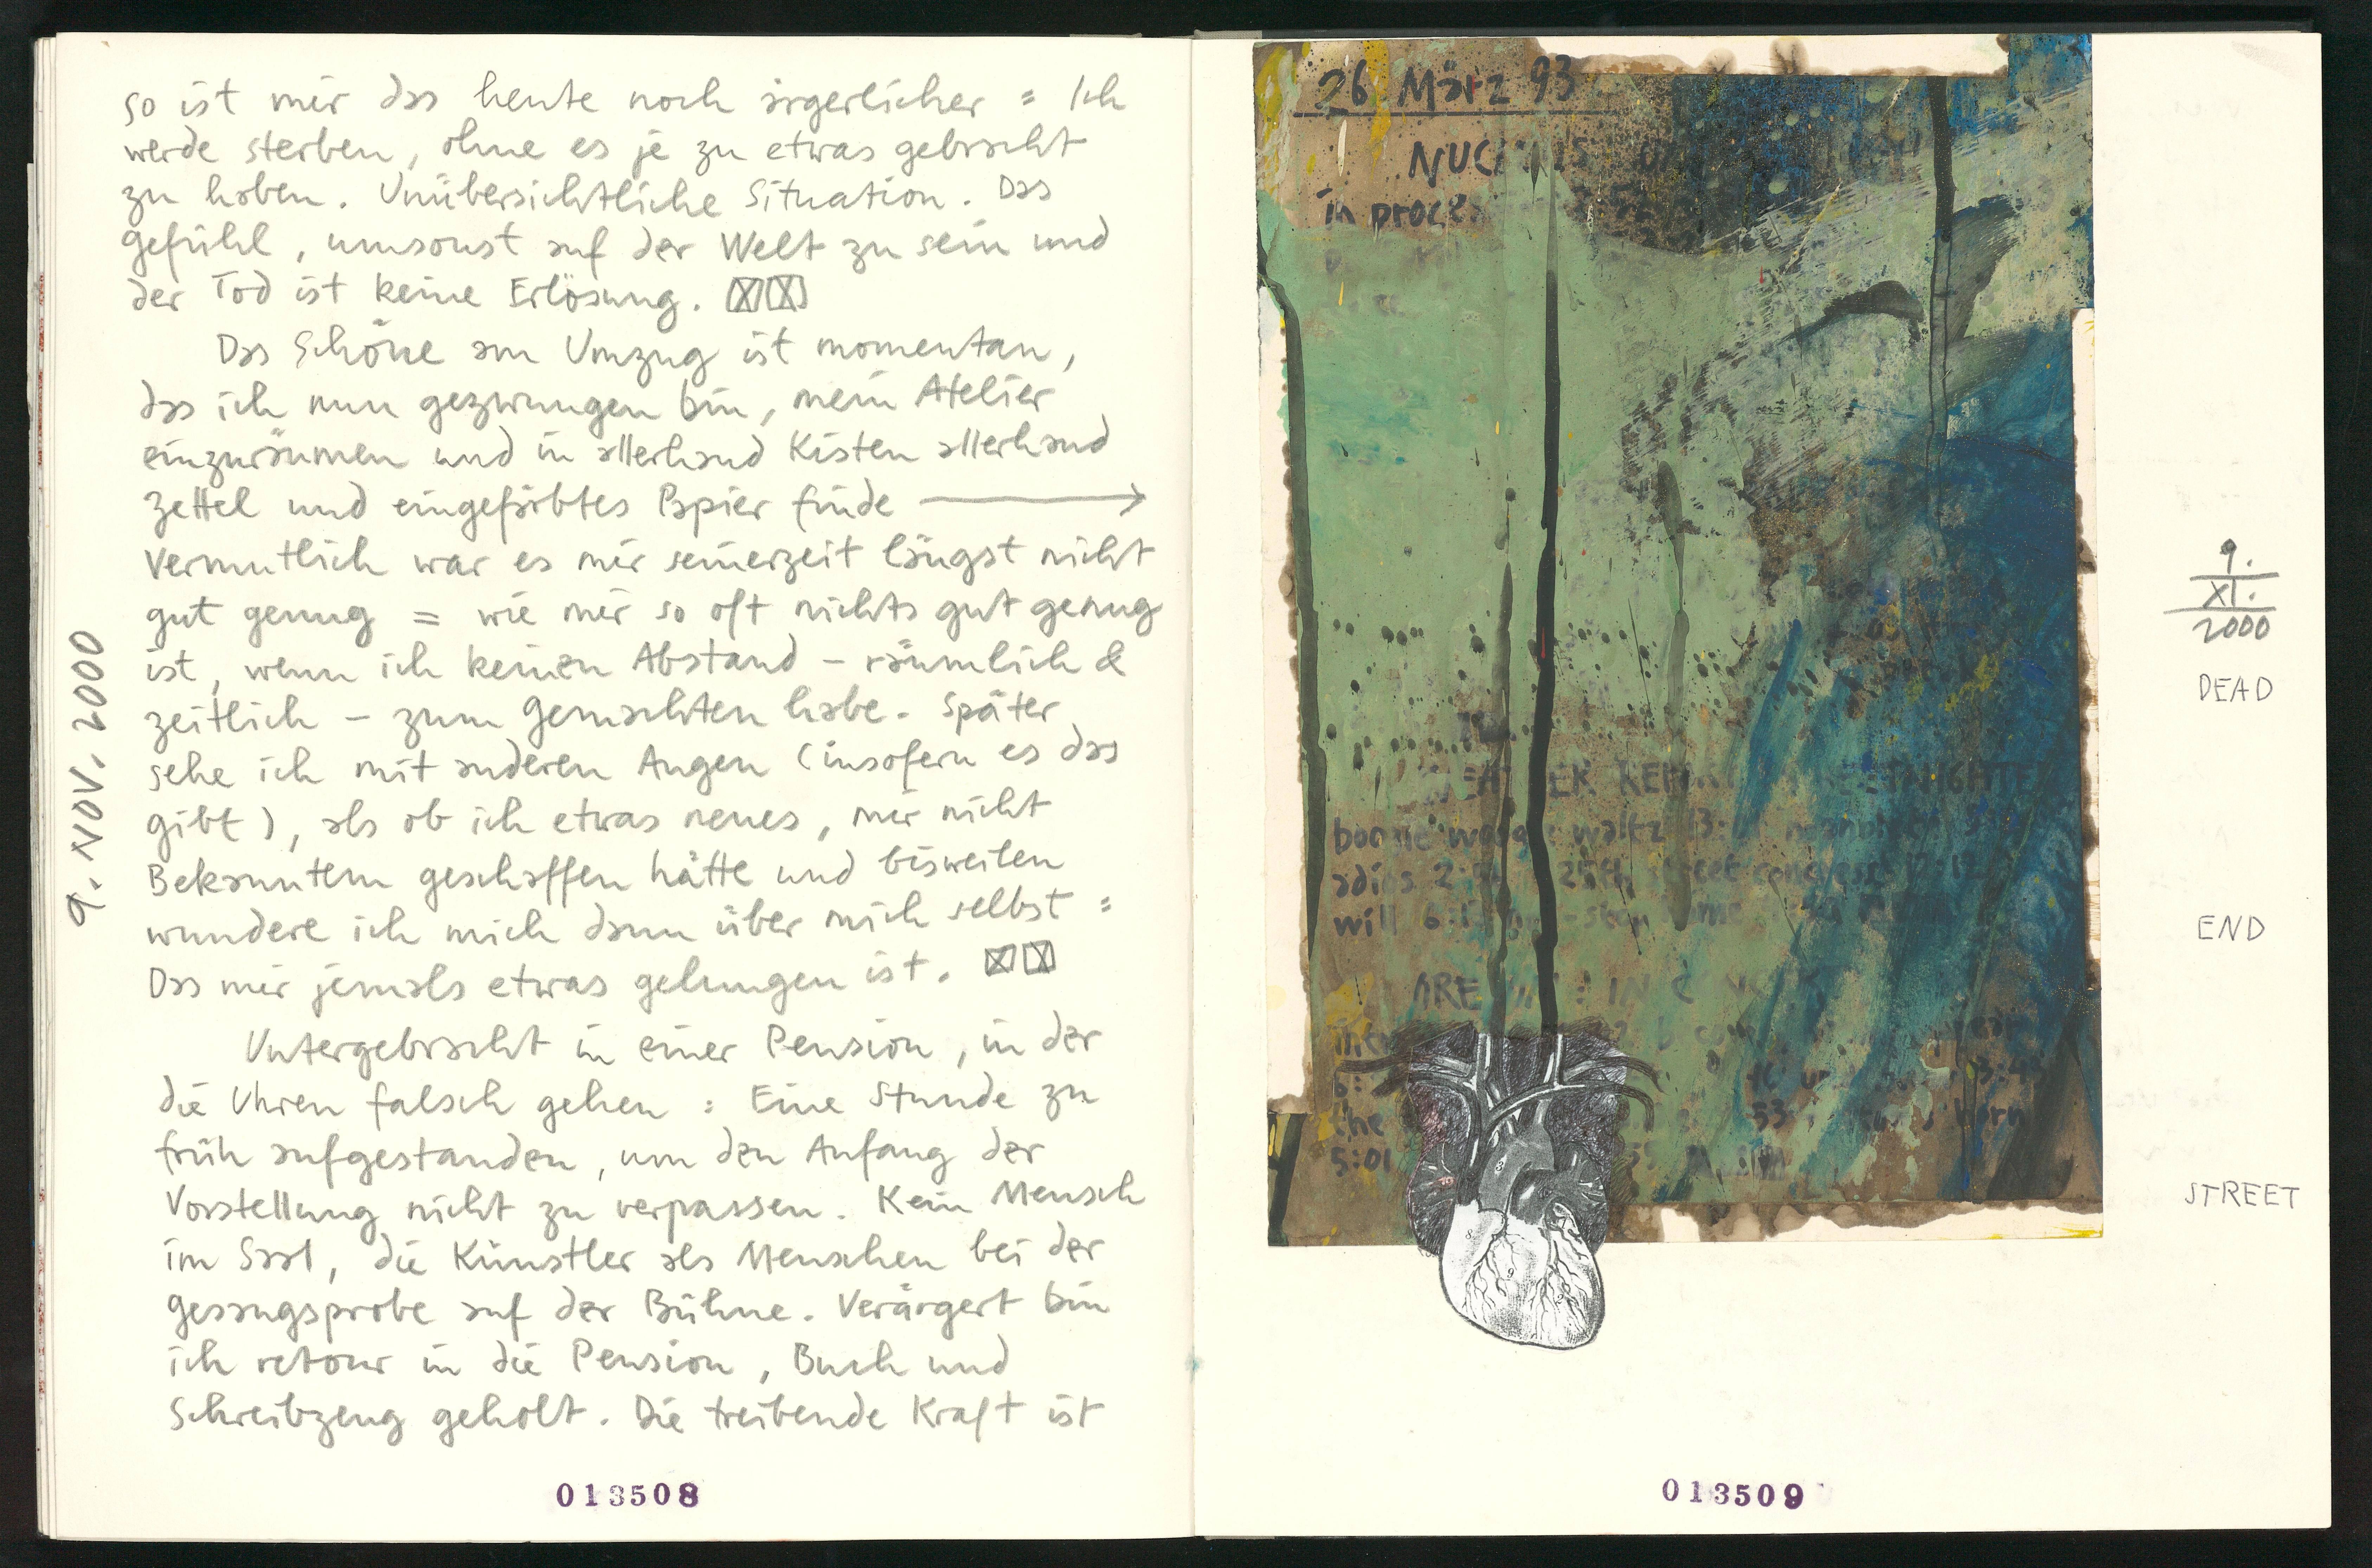 so ist mir das heute noch ärgerlicher = Ich
werde sterben, ohne es je zu etwas gebracht
zu haben. Unübersichtliche Situation. Das
Gefühl, umsonst auf der Welt zu sein und
der Tod ist keine Erlösung.
Das Schöne am Umzug ist momentan,
das ich nun gezwungen bin, mein Atelier
einzuräumen und in allerhand Kisten allerhand
Zettel und eingefärbtes Papier finde →
Vermutlich war es mir seinerzeit längst nicht
gut genug = wie mir so oft nichts gut genug
ist, wenn ich keinen Abstand – räumlich &
zeitlich – zum Gemachten habe. Später
sehe ich mit anderen Augen (insofern es das
gibt), als ob ich etwas neues, mir nicht
Bekanntem geschaffen hätte und bisweilen
wundere ich mich dann über mich selbst =
Das mir jemals etwas gelungen ist.
Untergebracht in einer Pension, in der
die Uhren falsch gehen : Eine Stunde zu
früh aufgestanden, um den Anfang der
Vorstellung nicht zu verpassen. Kein Mensch
im Saal, die Künstler als Menschen bei der
Gesangsprobe auf der Bühne. Verärgert bin
ich retour in die Pension, Buch und
Schreibzeug geholt. Die treibende Kraft ist
9. NOV. 2000
013508
26 März 93
in proces
boogie woogie waltz 13:
adios 2: 25th street congress 12:12
will 6:
ARE IN
the born
5:01
9.
XI.
2000
DEAD
END
STREET
013509